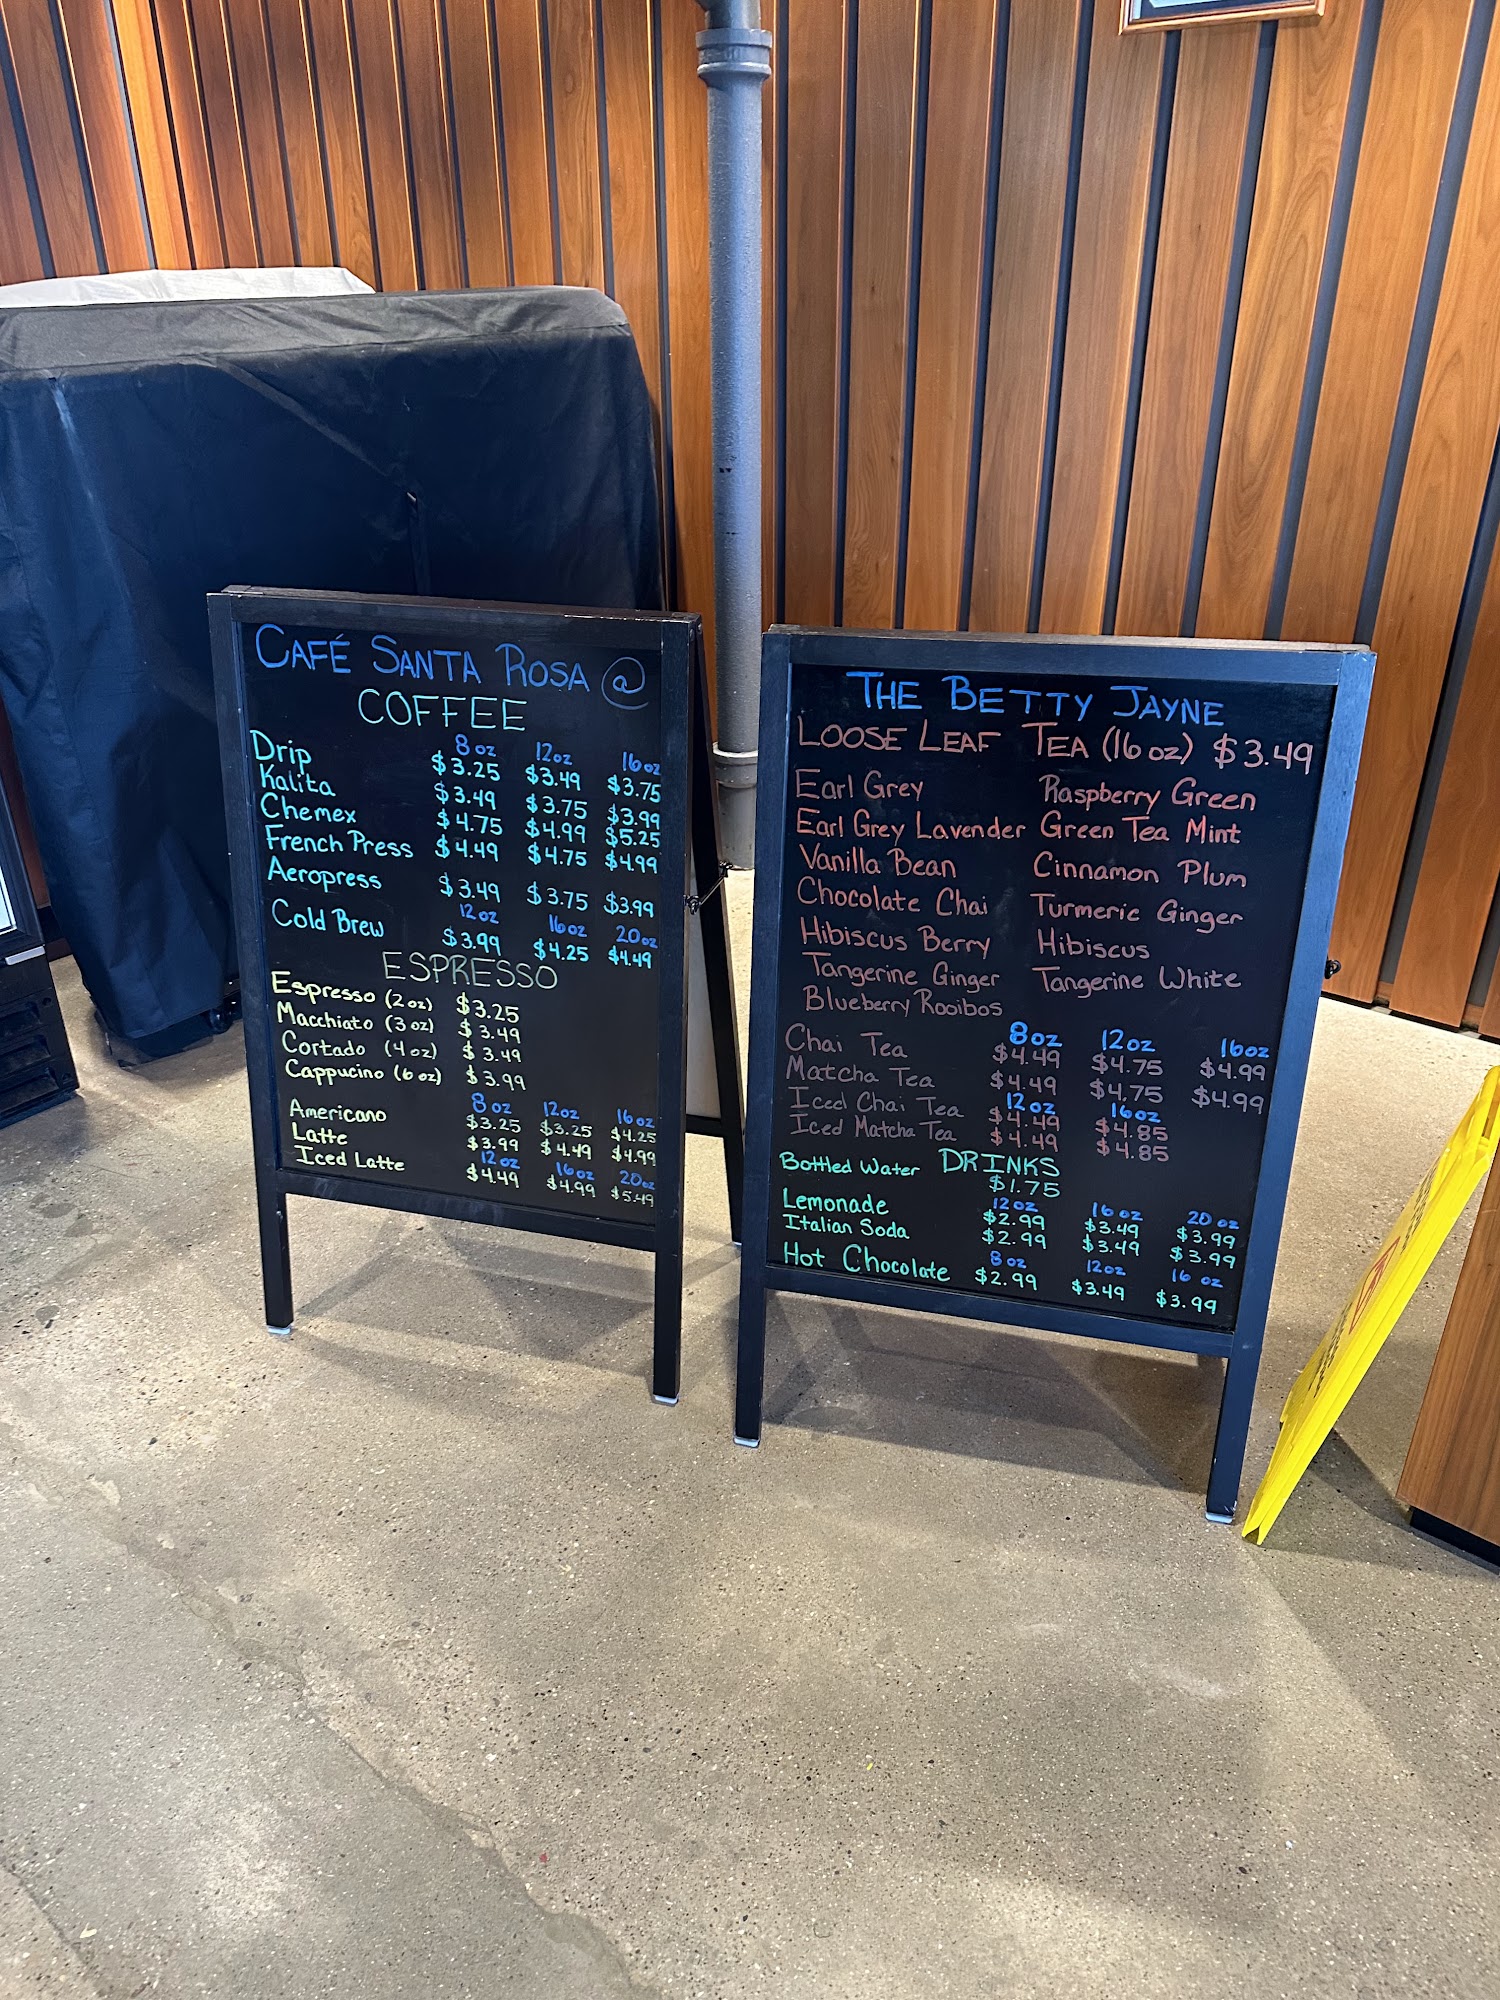 CAFÉ SANTA ROSA @
COFFEE
8 oz 12oz 16oz
Drip $3.25 $3.49 $3.75
Kalita $3.49 $3.75 $3.99
Chemex $4.75 $4.99 $5.25
French Press $4.49 $4.75 $4.99
Aeropress $3.49 $3.75 $3.99
12oz 16oz 20oz
Cold Brew $3.99 $4.25 $4.49
ESPRESSO
Espresso (2oz) $3.25
Macchiato (3oz) $3.49
Cortado (4oz) $3.49
Cappucino (6oz) $3.99
8oz 12oz 16oz
Americano $3.25 $3.25 $4.25
Latte $3.99 $4.49 $4.99
12oz 16oz 20oz
Iced Latte $4.49 $4.99 $5.49
THE BETTY JAYNE
LOOSE LEAF TEA (16 oz) $3.49
Earl Grey Raspberry Green
Earl Grey Lavender Green Tea Mint
Vanilla Bean Cinnamon Plum
Chocolate Chai Turmeric Ginger
Hibiscus Berry Hibiscus
Tangerine Ginger Tangerine White
Blueberry Rooibos
8oz 12oz 16oz
Chai Tea $4.49 $4.75 $4.99
Matcha Tea $4.49 $4.75 $4.99
12oz 16oz
Iced Chai Tea $4.49 $4.85
Iced Matcha Tea $4.49 $4.85
DRINKS
Bottled Water $1.75
12oz 16oz 20oz
Lemonade $2.99 $3.49 $3.99
Italian Soda $2.99 $3.49 $3.99
8oz 12oz 16 oz
Hot Chocolate $2.99 $3.49 $3.99